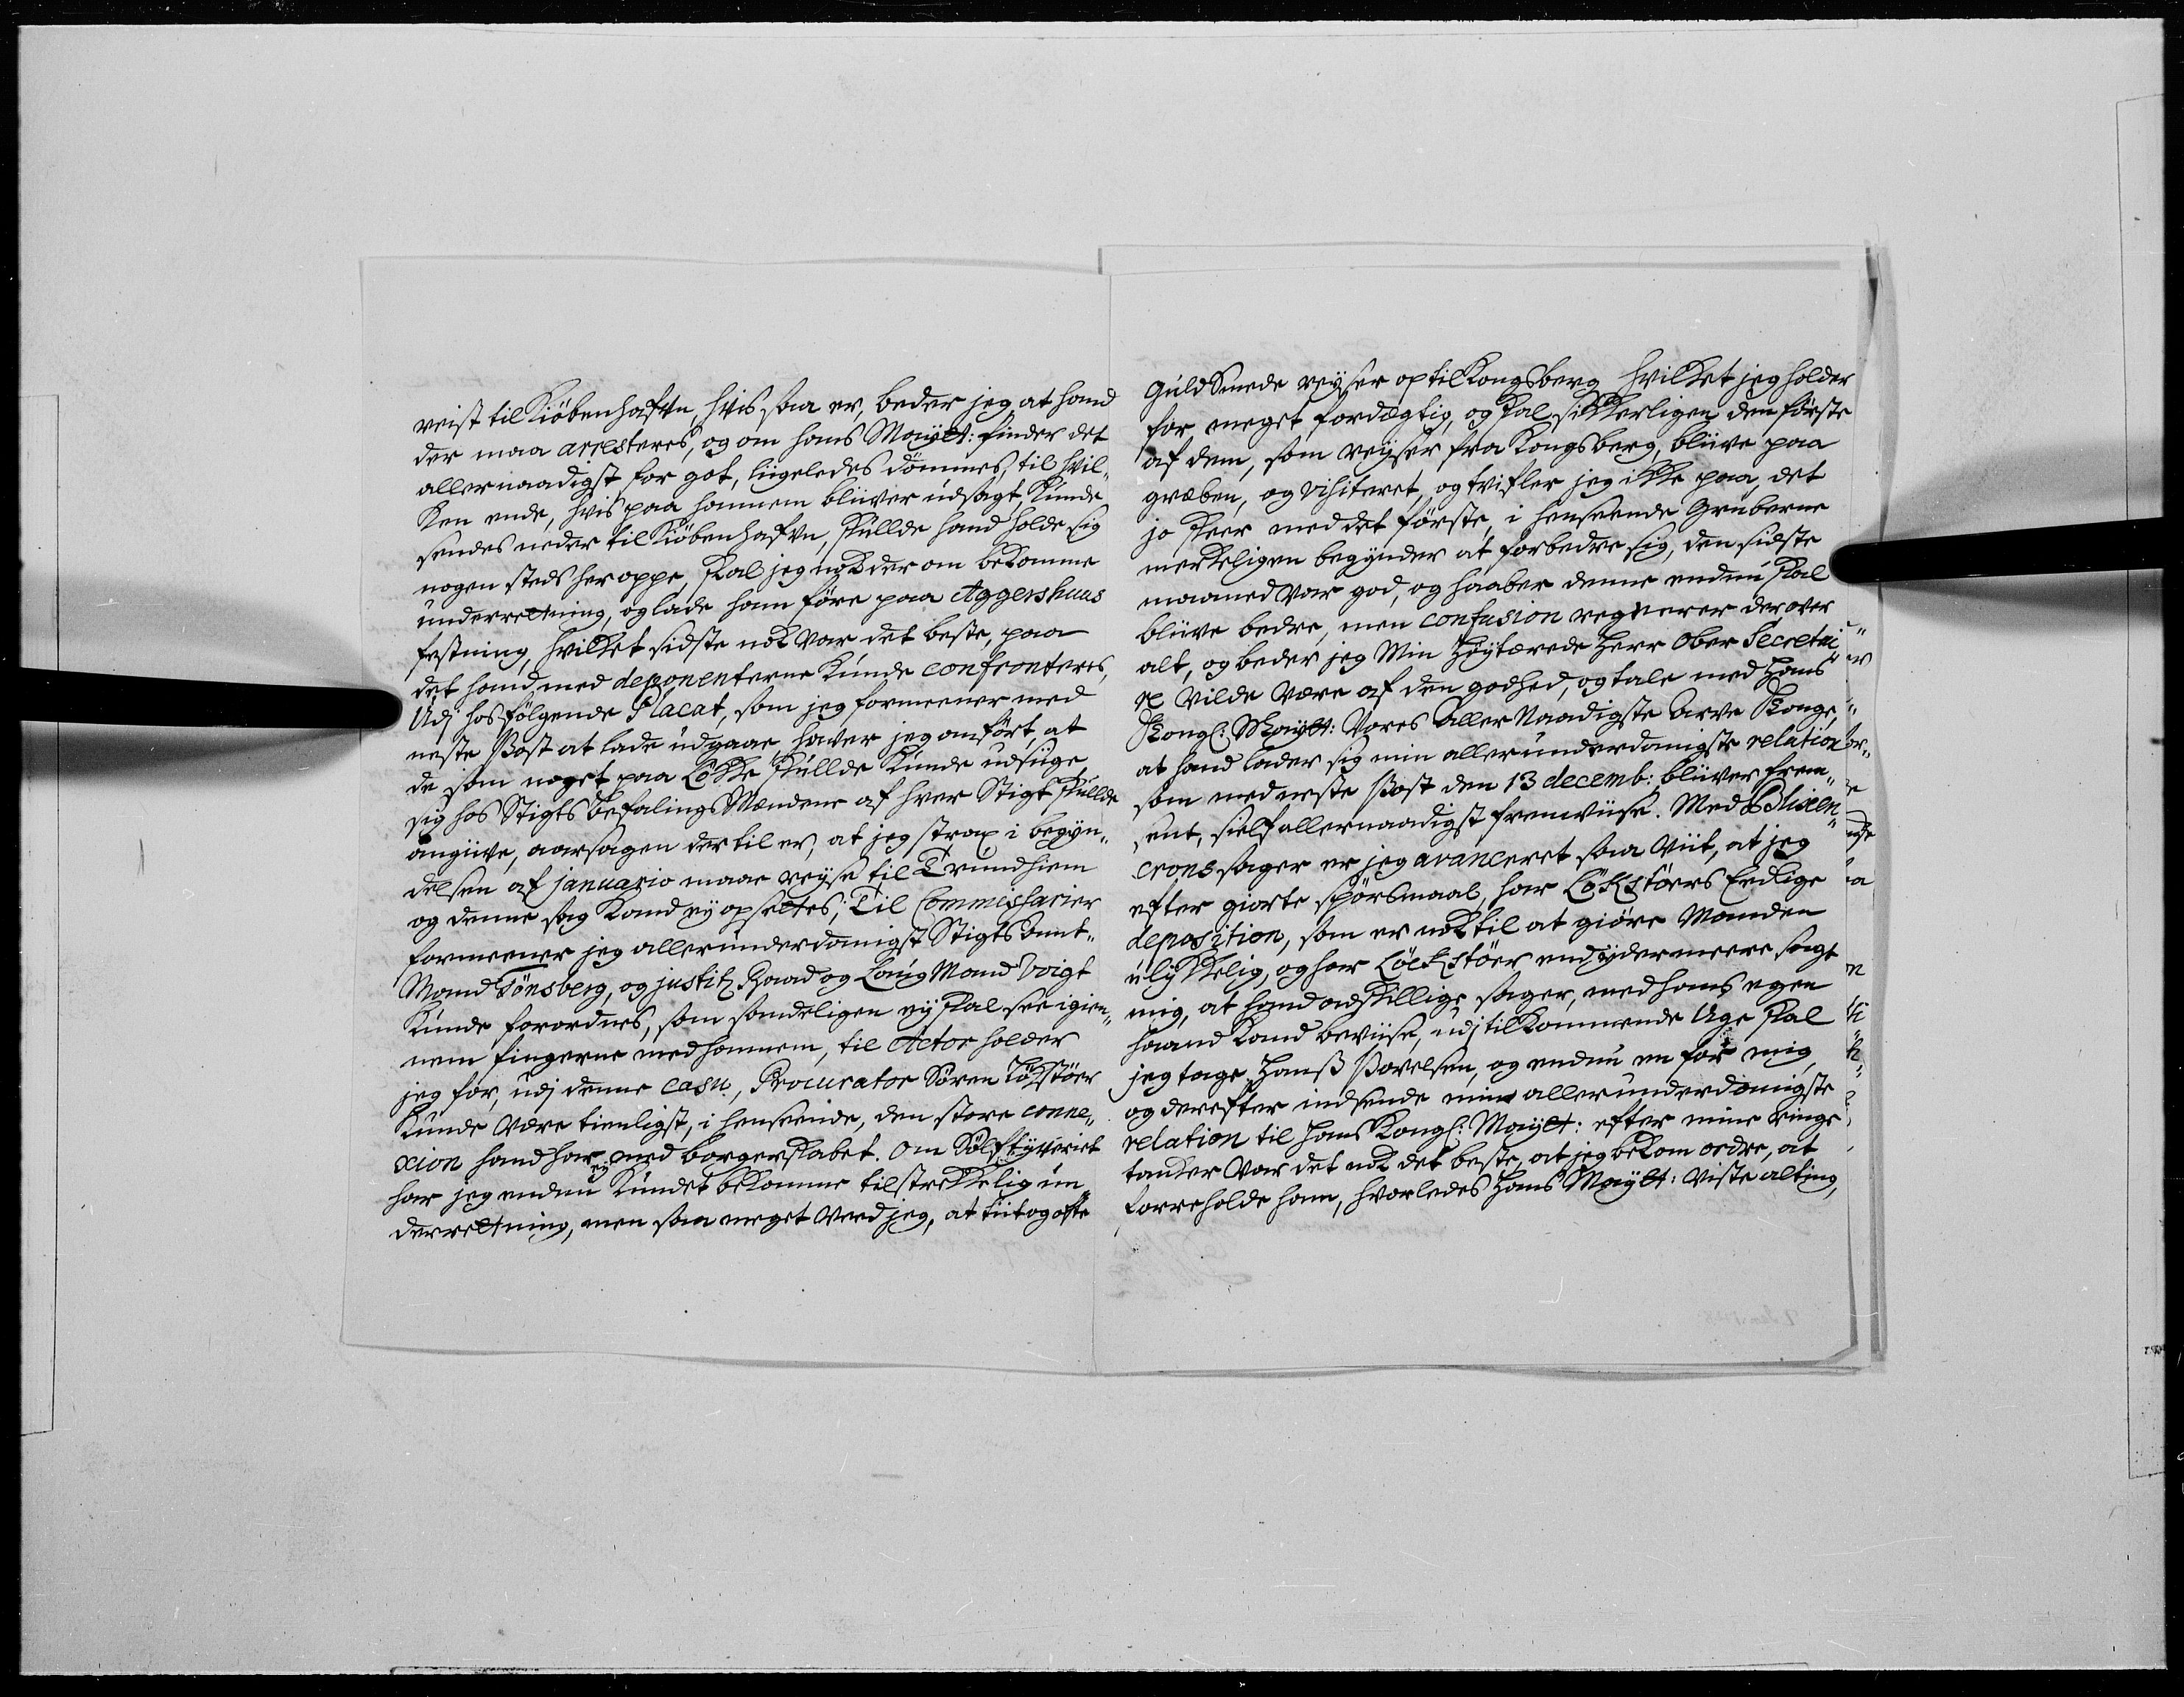 reist til Kiöbenhafvn, hvis saa er, beder jeg, at hand
der maa arresteres, og om hans Mayt: finder det
allernaadigst for got, liigeledes dömmes, til hvil„
ken ende, hvis paa hannem bliver udsagt, kunde
sendes neder til Kiöbenhafvn, skullde hand holde sig
nogen steds her oppe, skal jeg nok der om bekomme
underretning, og lade ham före paa Aggershuus
festning, hvilket sidste nok var det beste, paa
det hand med deponenterne kunde confronteres,
Udj hosfölgende Placat, som jeg formeener med
neste Post at lade udgaae, haver jeg anfört, at
de som noget paa Lökke skullde kunde udsiige,
sig hos Stigts Befalings Mændene af hver Stigt skullde
angiive, aarsagen der til er, at jeg strax i begyn„
delsen af januario maae reyse til Trundhiem
og denne sag kand ey opsettes; Til Commissarier
formeener jeg allerunderdanigst Stigts Amt„
Mand Tönsberg, og justitz Raad og Laug Mand Voigt
kunde forordnes, som samdeligen ey skal see igien„
nem fingerne med hannem, til Actor holder
jeg for, udj denne casu, Procurator Sören Lökstöer
kunde være tienligst, i henseende, den store conne„
xion hand har med borgerskabet. Om Sölftyveriet
har jeg endnu ey kundet bekomme tilstrekkelig un„
derretning, men saa meget veed jeg, at tiit og ofte
Guldsmede reyser op til Kongsberg hvilket jeg holder
for meget fordægtig, og skal sikkerligen den förste
af dem, som reyser fra Kongsberg, bliive paa
græben, og visiteret, og tvifler jeg ikke paa, det
jo skeer med det förste, i henseende Gruberne
merkeligen begynder at forbedre sig, den sidste
maaned var god, og haaber denne endnu skal
bliive bedre, men confusion regnerer der over
alt, og beder jeg Min Höytærede Herr Ober Secretai„
re vilde være af den godhed, og tale med Hans
Kongl: Mayt: Vores Aller Naadigste Arve Konge,
at hand lader sig min allerunderdanigste relation
som med neste Post den 13 decemb: bliiver hren„
sent, sielf allernaadigst fremviise. Med Blixen„
crons sager er jeg avanceret saa viit, at jeg
efter giorte spörsmaal, har Lökstöers Eedlige
deposition, som er nok til at giöre Manden
ulykkelig, og har Löckstöer end ydermeere sagt
mig, at hand adskillige sager, med hans egen
haand kand beviise, udj tilkommende Uge skal
jeg tage Hanß Povelsen, og endnu en for mig,
og derefter indsende min allerunderdanigste
relation til Hans Kongl: Mayt: efter mine ringe
tanker var det nok det beste, at jeg bekom ordre, at
foreholde ham, hvorledes Hans Mayt: viste alting,